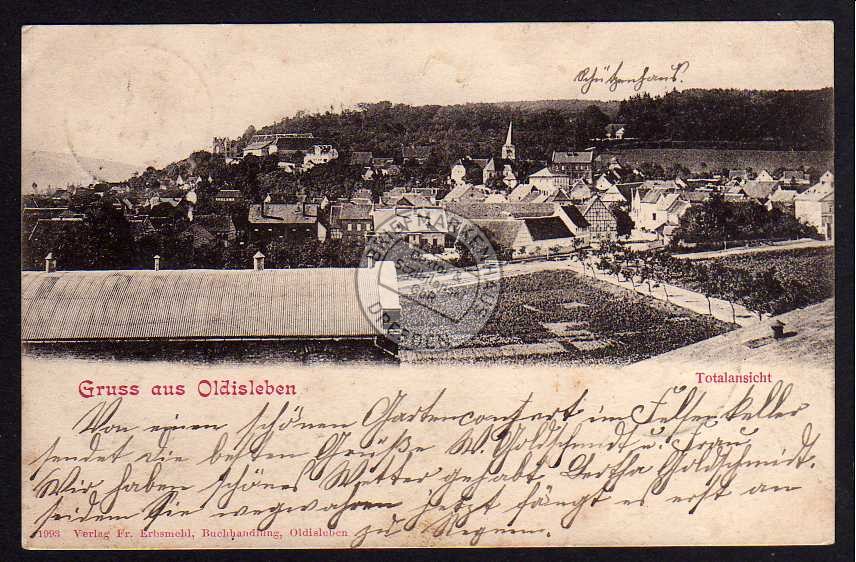 Schützenhaus.
Gruss aus Oldisleben
Totalansicht
Von einen schönen Gartenconzert im Felsenkeller
sendet die besten Grüße W. Goldschmidt u. Frau
Bertha Goldschmidt.
Wir haben schönes Wetter gehabt,
seidem Sie weg waren jetzt fängt es erst an
zu Regnen.
1993 Verlag Fr. Erbsmehl, Buchhandlung, Oldisleben